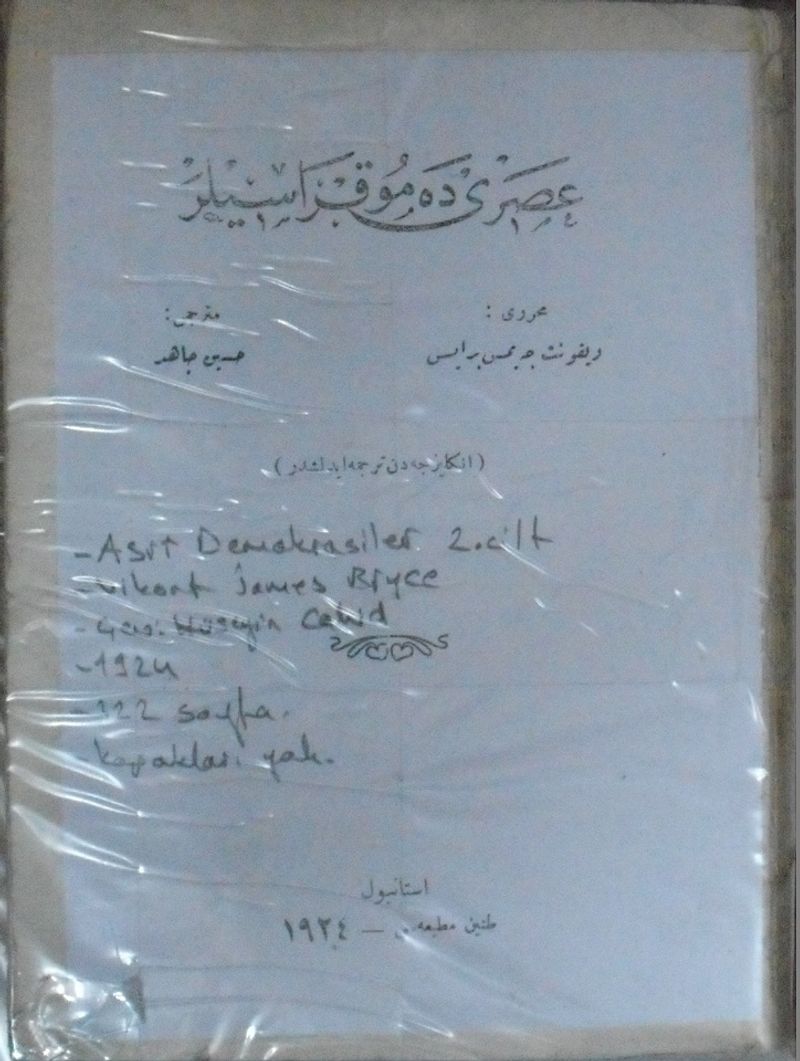 عصری ده موقراسیلر
محرری :
ویقونت جیمس برایس
مترجمی :
حسین جاهد
( انكلیزجه دن ترجمه ایدلشدر )
- Asrî Demokrasiler 2. cilt
- Vikont James Bryce
- Çev: Hüseyin Cahid
- 1924
- 322 sayfa.
- kapakları yok.
استانبول
طنین مطبعه سی — ١٩٢٤